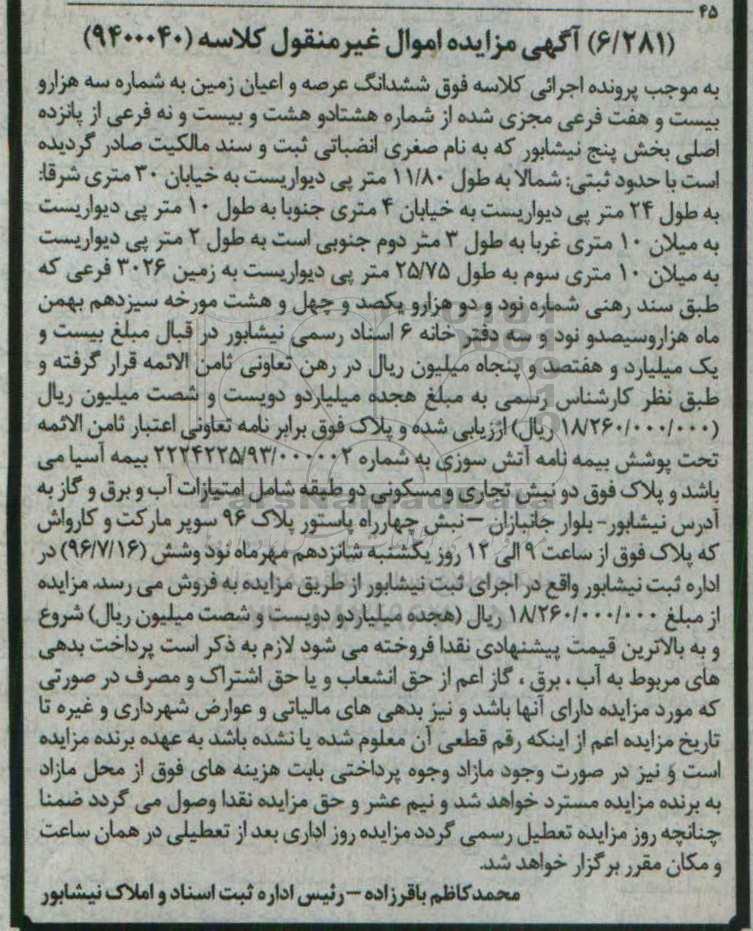 ۴۵
(۶/۲۸۱) آگهی مزایده اموال غیرمنقول کلاسه (۹۴۰۰۰۴۰)
به موجب پرونده اجرائی کلاسه فوق ششدانگ عرصه و اعیان زمین به شماره سه هزارو
بیست و هفت فرعی مجزی شده از شماره هشتادو هشت و بیست و نه فرعی از پانزده
اصلی بخش پنج نیشابور که به نام صغری انضباتی ثبت و سند مالکیت صادر گردیده
است با حدود ثبتی: شمالا به طول ۱۱/۸۰ متر پی دیواریست به خیابان ۳۰ متری شرقا:
به طول ۲۴ متر پی دیواریست به خیابان ۴ متری جنوبا به طول ۱۰ متر پی دیواریست
به میلان ۱۰ متری غربا به طول ۳ متر دوم جنوبی است به طول ۲ متر پی دیواریست
به میلان ۱۰ متری سوم به طول ۲۵/۷۵ متر پی دیواریست به زمین ۳۰۲۶ فرعی که
طبق سند رهنی شماره نود و دو هزارو یکصد و چهل و هشت مورخه سیزدهم بهمن
ماه هزاروسیصدو نود و سه دفتر خانه ۶ اسناد رسمی نیشابور در قبال مبلغ بیست و
یک میلیارد و هفتصد و پنجاه میلیون ریال در رهن تعاونی ثامن الائمه قرار گرفته و
طبق نظر کارشناس رسمی به مبلغ هجده میلیاردو دویست و شصت میلیون ریال
(۱۸/۲۶۰/۰۰۰/۰۰۰ ریال) ارزیابی شده و پلاک فوق برابر نامه تعاونی اعتبار ثامن الائمه
تحت پوشش بیمه نامه آتش سوزی به شماره ۲۲۲۴۲۲۵/۹۳/۰۰۰۰۰۲ بیمه آسیا می
باشد و پلاک فوق دو نبش تجاری و مسکونی دو طبقه شامل امتیازات آب و برق و گاز به
آدرس نیشابور- بلوار جانبازان – نبش چهارراه پاستور پلاک ۹۶ سوپر مارکت و کارواش
که پلاک فوق از ساعت ۹ الی ۱۲ روز یکشنبه شانزدهم مهرماه نود وشش (۹۶/۷/۱۶) در
اداره ثبت نیشابور واقع در اجرای ثبت نیشابور از طریق مزایده به فروش می رسد. مزایده
از مبلغ ۱۸/۲۶۰/۰۰۰/۰۰۰ ریال (هجده میلیاردو دویست و شصت میلیون ریال) شروع
و به بالاترین قیمت پیشنهادی نقدا فروخته می شود لازم به ذکر است پرداخت بدهی
های مربوط به آب ، برق ، گاز اعم از حق انشعاب و یا حق اشتراک و مصرف در صورتی
که مورد مزایده دارای آنها باشد و نیز بدهی های مالیاتی و عوارض شهرداری و غیره تا
تاریخ مزایده اعم از اینکه رقم قطعی آن معلوم شده یا نشده باشد به عهده برنده مزایده
است و نیز در صورت وجود مازاد وجوه پرداختی بابت هزینه های فوق از محل مازاد
به برنده مزایده مسترد خواهد شد و نیم عشر و حق مزایده نقدا وصول می گردد ضمنا
چنانچه روز مزایده تعطیل رسمی گردد مزایده روز اداری بعد از تعطیلی در همان ساعت
و مکان مقرر برگزار خواهد شد.
محمدکاظم باقرزاده – رئیس اداره ثبت اسناد و املاک نیشابور